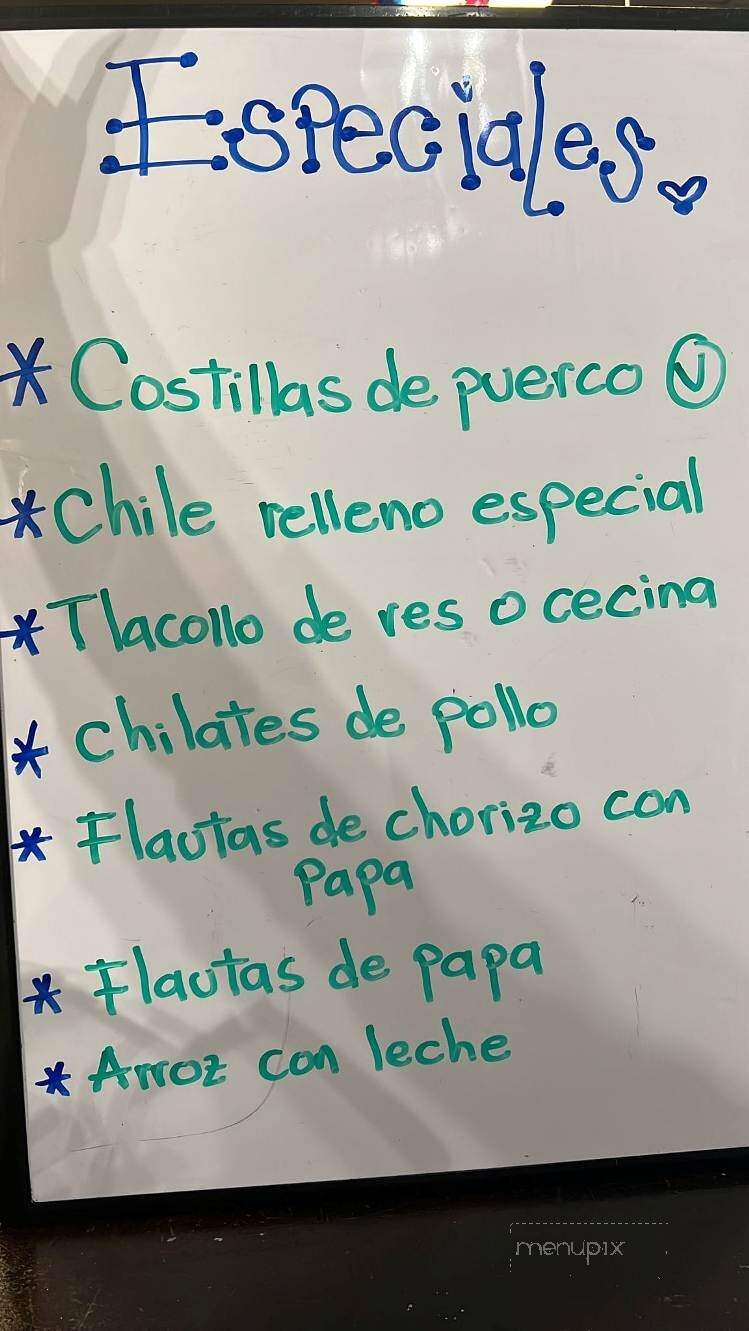 Especiales
* Costillas de puerco Ⓥ
* Chile relleno especial
* Tlacollo de res o cecina
* chilates de pollo
* Flautas de chorizo con
Papa
* Flautas de papa
* Arroz con leche
menupix